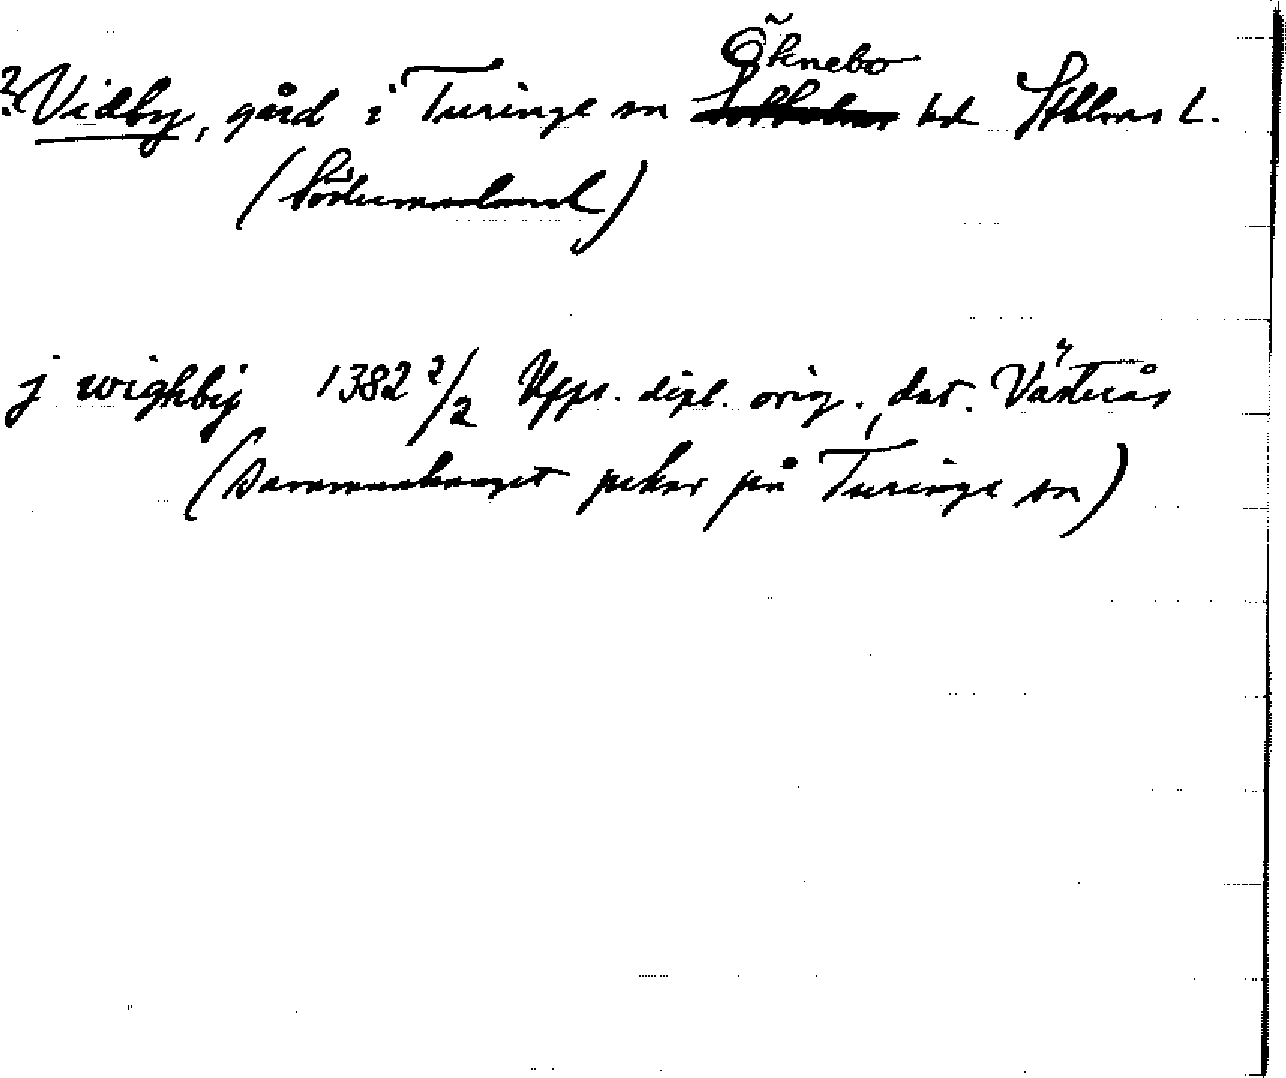 ? Vidby, gård i Turinge sn Öknebo hd Sthlms l.
(Södermanland)
j wighbij 1382 2/2 Upps. dipl. orig., dat. Västerås
(Sammanhanget pekar på Turinge sn)